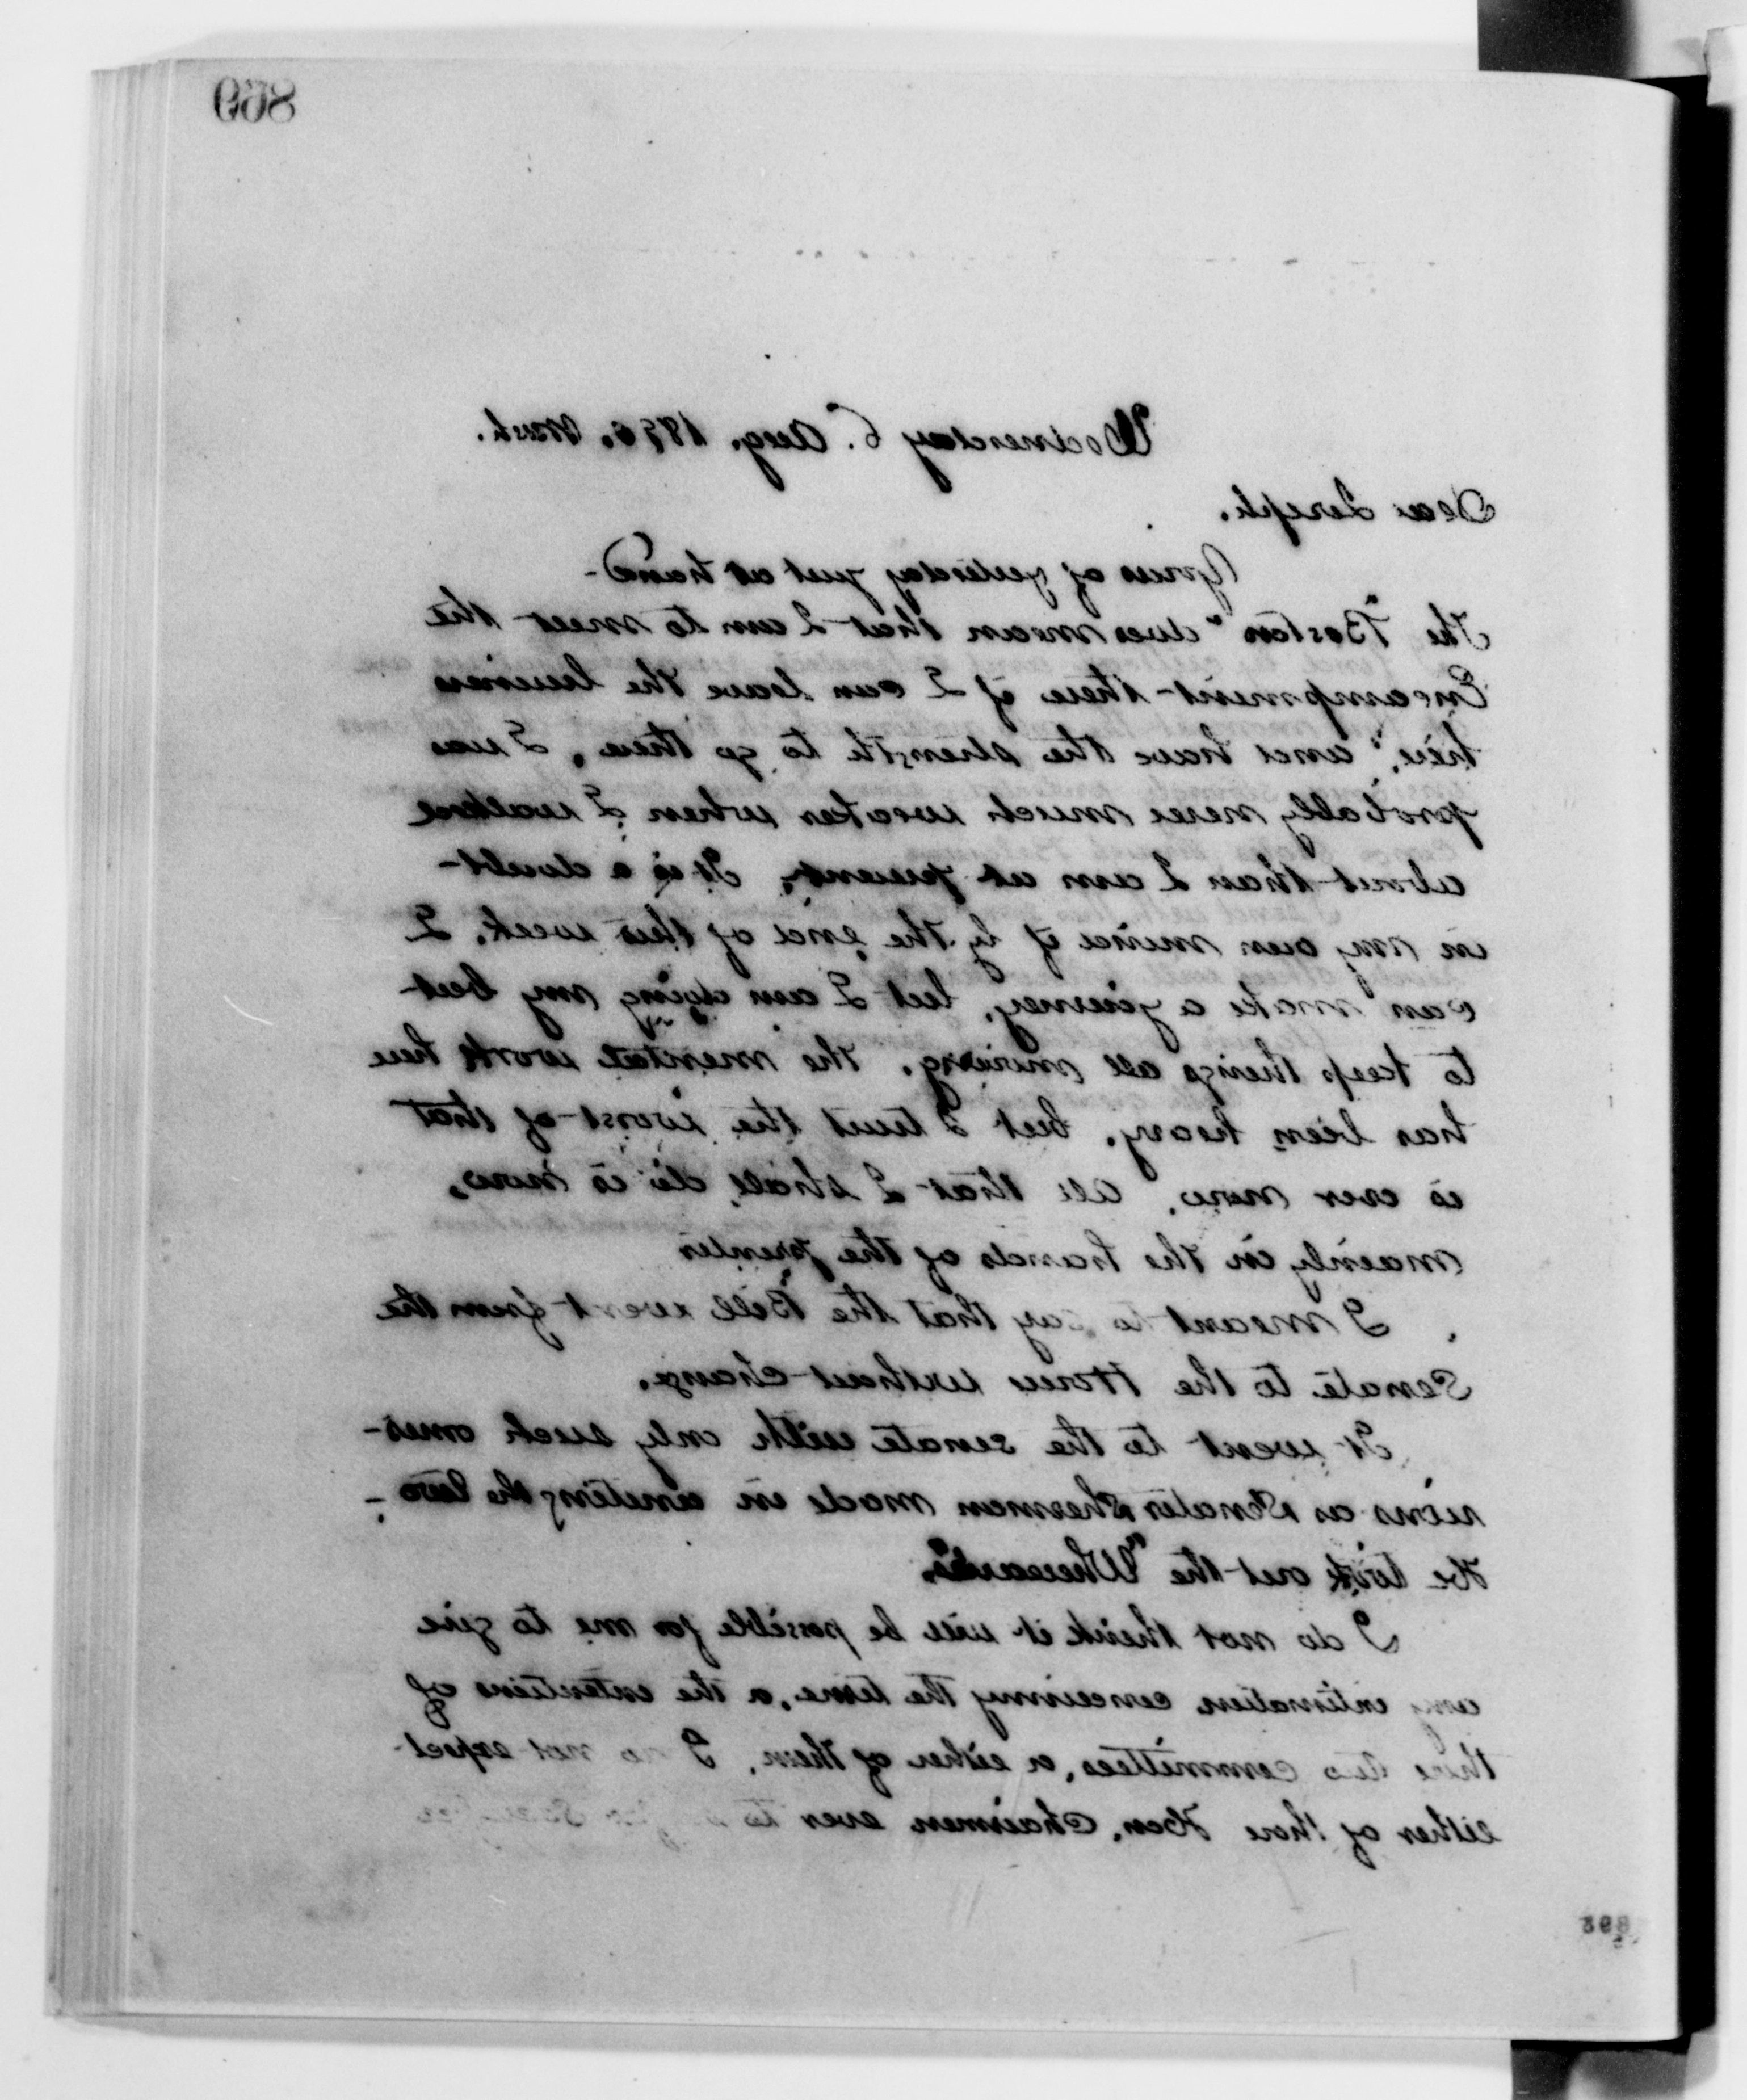 859
Wednesday 6. Aug. 1890. Wash.
Dear Joseph.
Yours of yesterday just at hand-
The "Boston" does mean that I am to meet the
Encampment there if I can leave the business
here, and have the strength to go there, I was
probably never much weaker when I walked
about than I am at present. It is a doubt
in my own mind if by the end of this week, I
can make a journey, but I am doing my best
to keep things all moving. The mental work here
has been heavy, but I trust the worst of that
is over now. All that I shall do is now,
mainly in the hands of the printer
I meant to say that the Bill went from the
Senate to the House without change.
It went to the senate with only such omis-
sions as Senator Sherman made in uniting the two-
He took out the "Whereases".
I do not think it will be possible for me to give
any intimation concerning the time, or the intentions of
these two committees, or either of them. I do not expect
either of those Hon. Chairmen ever to